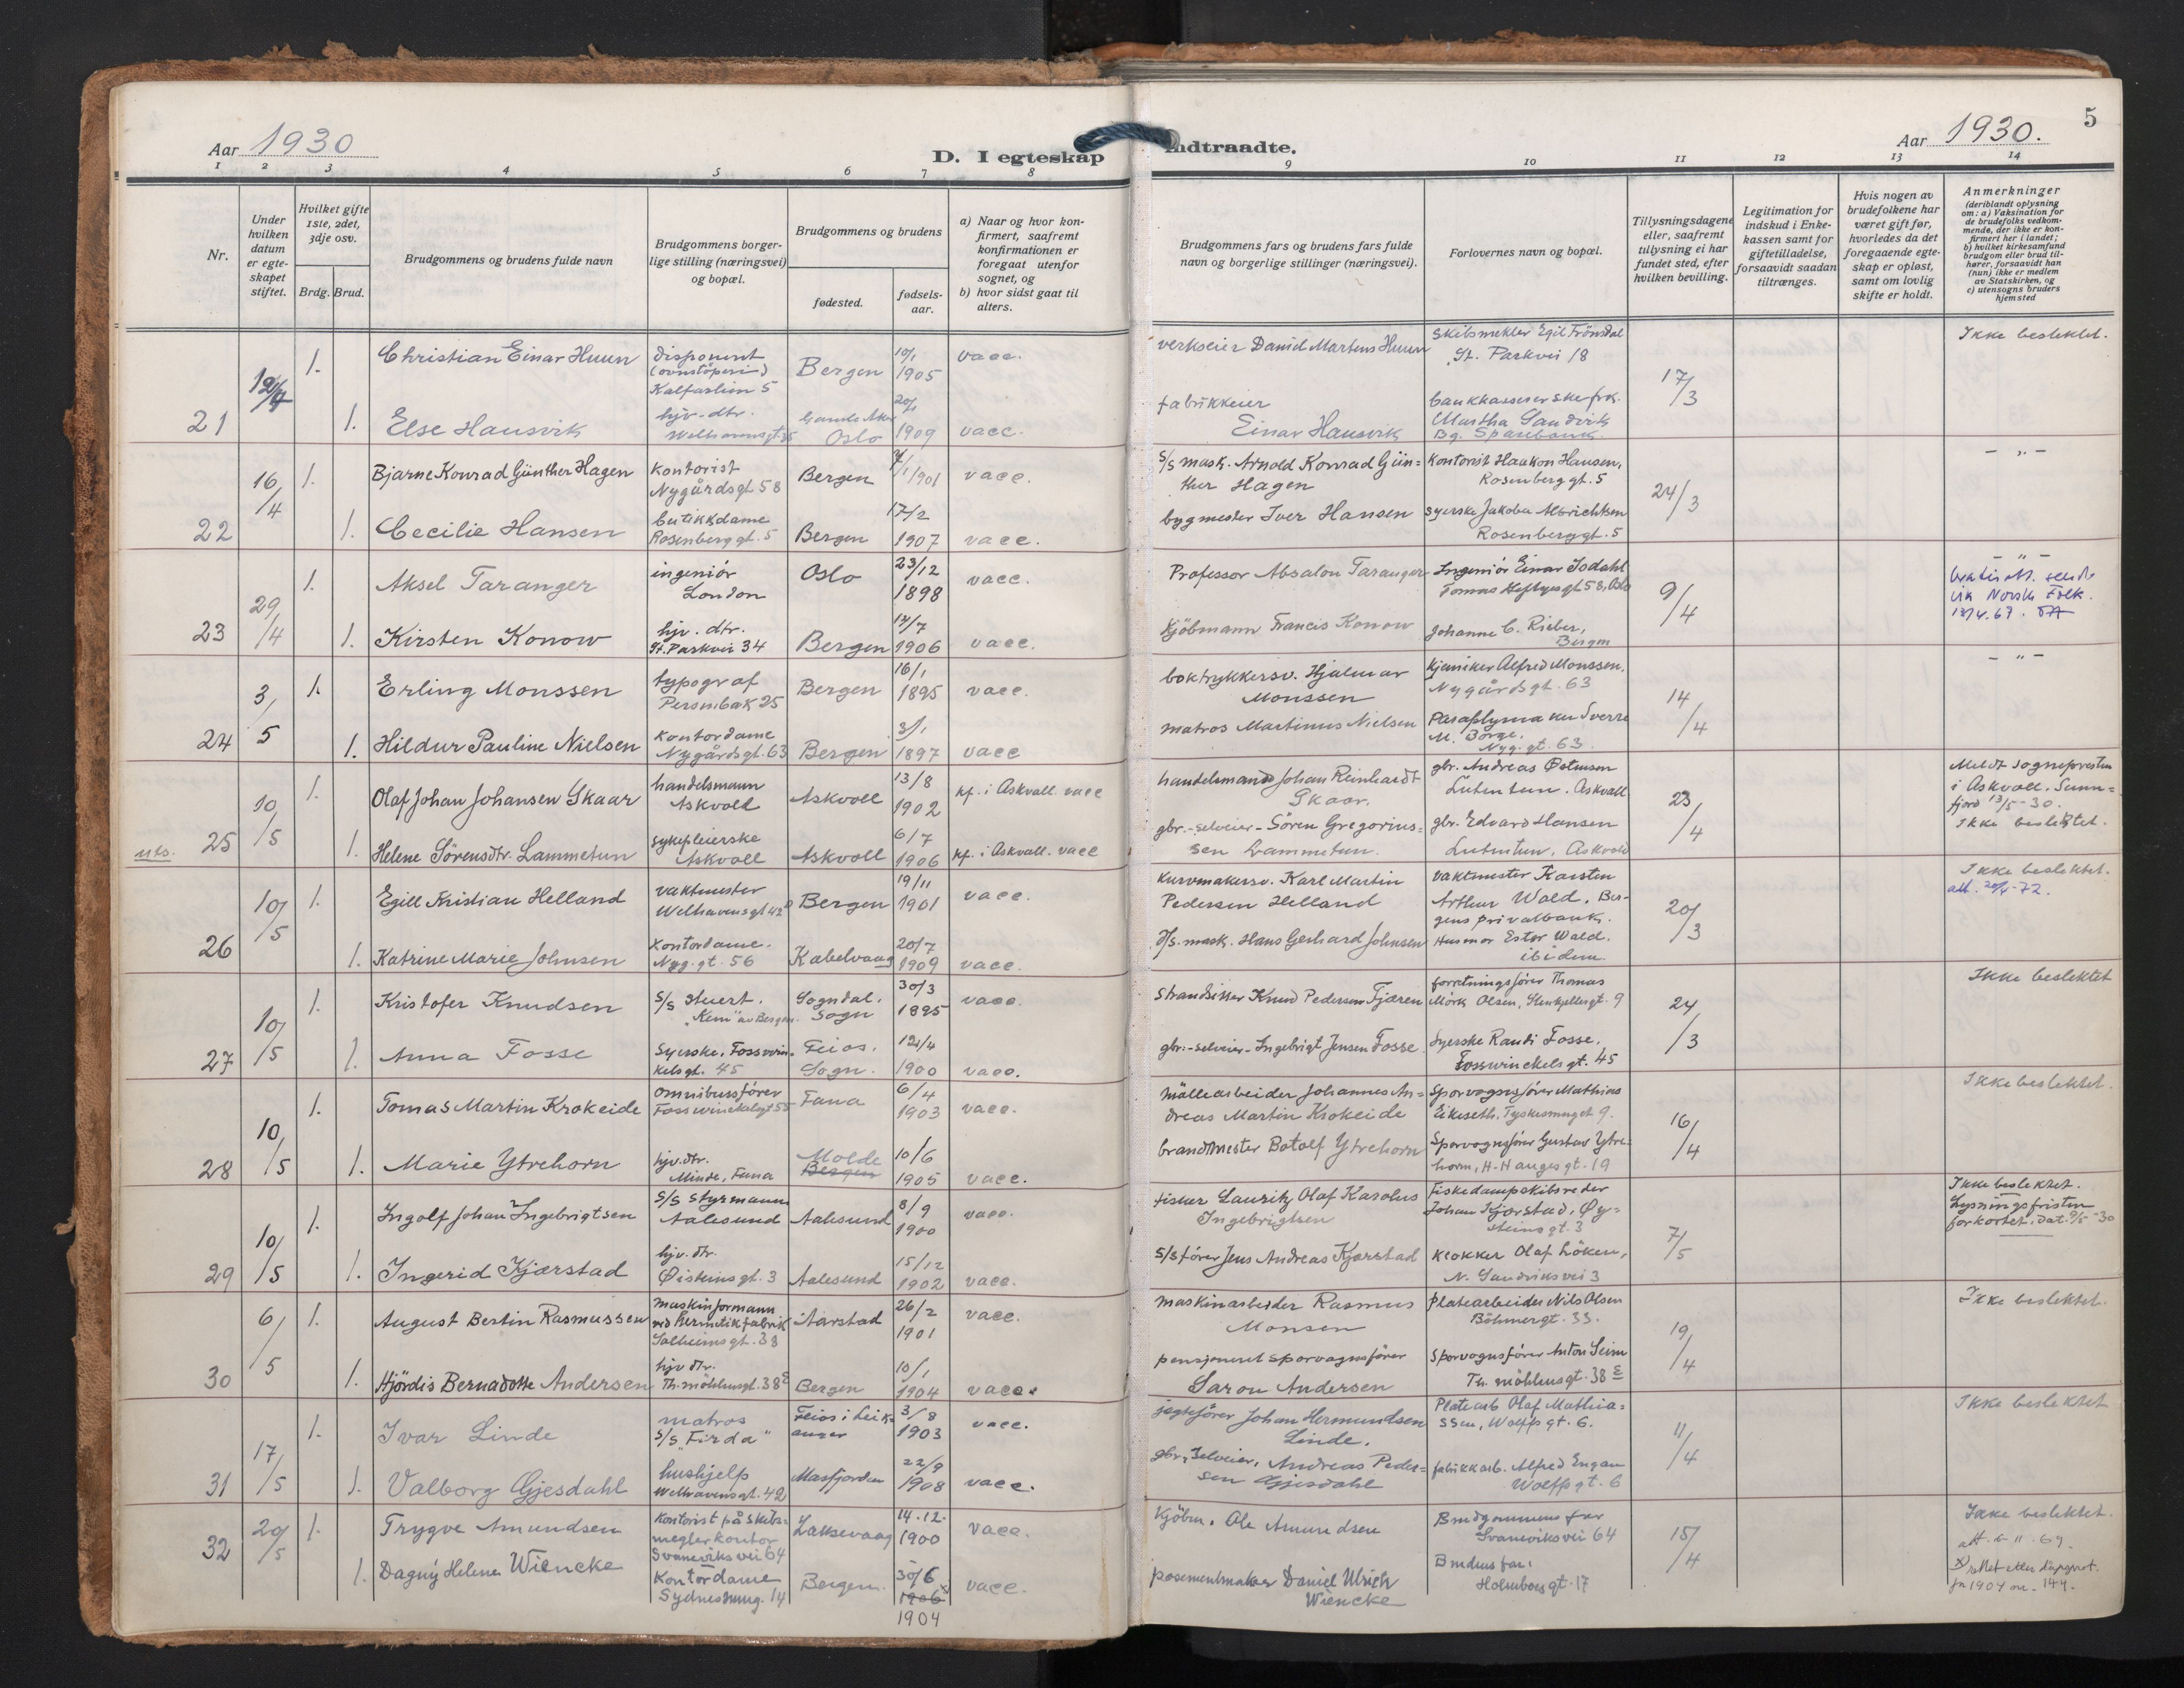 Aar 1930
D. I egteskap indtraadte.
Aar 1930.
5
1 2 3 4 5 6 7 8 9 10 11 12 13 14
Nr.
Under hvilken datum er egteskapet stiftet.
Hvilket gifte 1ste, 2det, 3dje osv.
Brdg. Brud.
Brudgommens og brudens fulde navn
Brudgommens borgerlige stilling (næringsvei) og bopæl.
Brudgommens og brudens
fødested.
fødselsaar.
a) Naar og hvor konfirmert, saafremt konfirmationen er foregaat utenfor sognet, og
b) hvor sidst gaat til alters.
Brudgommens fars og brudens fars fulde navn og borgerlige stillinger (næringsvei).
Forlovernes navn og bopæl.
Tillysningsdagene eller, saafremt tillysning ei har fundet sted, efter hvilken bevilling.
Legitimation for indskud i Enkekassen samt for giftetilladelse, forsaavidt saadan tiltrænges.
Hvis nogen av brudefolkene har været gift før, hvorledes da det foregaaende egteskap er opløst, samt om lovlig skifte er holdt.
Anmerkninger
(deriblandt oplysning om: a) Vaksination for de brudefolks vedkommende, der ikke er konfirmert her i landet;
b) hvilket kirkesamfund brudgom eller brud tilhører, forsaavidt han (hun) ikke er medlem av Statskirken, og
c) utensogns bruders hjemsted
21 12/4 1. Christian Einar Huun disponent (ovnstöperi) Kalfarlien 5 Bergen 10/1 1905 vacc. verkseier Daniel Martens Huun Skibsmekler Egil Frönsdal St. Parkvei 18 17/3 Ikke beslektet.
1. Else Hausvik hjv. dtr. Welhavensgt. 35 Oslo 1909 vacc. fabrikkeier Einar Hausvik bankkassererske frk. Martha Sandvik Bg. Sparebank.
22 16/4 1. Bjarne Konrad Günther Hagen kontorist Nygårdsgt 58 Bergen 1901 vacc. S/S mask. Arnold Konrad Günther Hagen kontorist Haakon Hansen, Rosenberggt. 5 24/3 - " -
1. Cecilie Hansen butikkdame Rosenberggt. 5 Bergen 17/2 1907 vacc. bygmester Iver Hansen syerske Jakoba Albrichtsen Rosenberggt. 5
23 29/4 1. Aksel Taranger ingeniör London Oslo 23/12 1898 vacc. Professor Absalon Taranger Ingeniör Einar Isdahl Tomas Heftyesgt 58, Oslo 9/4 - " -
via Norsk Folk.
1. Kirsten Konow hjv. dtr. St. Parkvei 34 Bergen 14/7 1906 vacc. Kjöbmann Francis Konow Johanne C. Rieber, Bergen
24 3/5 1. Erling Monssen typograf Bergen 16/1 1895 vacc. boktrykkersv. Hjalmar Monssen kjemiker Alfred Monssen, Nygårdsgt. 63 14/4 - " -
1. Hildur Pauline Nielsen kontordame Nygårdsgt. 63 Bergen 3/1 1897 vacc matros Martinus Nielsen Paraplymaker Sverre M. Börge, Nyg. gt. 63.
uts. 25 10/5 1. Olaf Johan Johansen Skaar handelsmann Askvoll Askvoll 13/8 1902 kf. i Askvoll. vacc handelsmand Johan Reinhardt Skaar. gbr. Andreas Østenson Lutentun. Askvoll 23/4 Meldt sognepresten i Askvoll, Sunnfjord 13/5-30. Ikke beslektet.
1. Helene Sörensdtr. Lammetun sykepleierske Askvoll Askvoll 6/7 1906 kf. i Askvoll. vacc gbr.-selveier- Sören Gregoriussen Lammetun. gbr. Edvard Hansen Lutentun, Askvoll
26 10/5 1. Egill Kristian Helland vaktmester Welhavensgt 42 Bergen 19/11 1901 vacc. kurvmakersv. Karl Martin Pedersen Helland vaktmester Karsten Arthur Wald, Bergens privatbank. 20/3 Ikke beslektet.
1. Katrine Marie Johnsen kontordame. Nyg. gt. 56 Kabelvaag 20/7 1909 vacc. D/S. mask. Hans Gerhard Johnsen Husmor Ester Wald. ibidem.
27 10/5 1. Kristofer Knudsen S/S stuert. "Kem" av Bergen. Sogndal, Sogn 30/3 1895 vacc. Strandsitter Knud Pedersen Fjæren forretningsförer Thomas Mörk Olsen, Stenkjellergt. 9 24/3 Ikke beslektet
1. Anna Fosse Syerske. Fosswinckelsgt. 45 Feios. Sogn. 12/4 1900 vacc. gbr.-selveier- Ingebrigt Jensen Fosse. Syerske Randi Fosse, Fosswinckelsgt. 45
28 10/5 1. Tomas Martin Krokeide omnibussförer Fosswinckelsgt 55 Fana 6/4 1903 vacc. möllearbeider Johannes Andreas Martin Krokeide Sporvognsförer Mathias Eikeseth, Tyskesmuget 9. 16/4 Ikke beslektet.
1. Marie Ytrehorn hjv. dtr. Minde, Fana Molde Bergen 10/6 1905 vacc. brandmester Botolf Ytrehorn Sporvognsförer Gustav Ytrehorn, H-Haugesgt. 19
29 10/5 1. Ingolf Johan Ingebrigtsen S/S styrmann Aalesund Aalesund 8/9 1900 vacc. fisker Lauritz Olaf Karolus Ingebrigtsen Fiskedampskibsreder Johan Kjørstad, Øysteinsgt. 3 7/5 Ikke beslektet. Lysningsfristen forkortet, dat. 9/5-30
1. Ingerid Kjærstad hjv. dtr. Øisteinsgt. 3 Aalesund 15/12 1902 vacc. S/S förer Jens Andreas Kjærstad klokker Olaf Löken, N. Sandviksvei 3
30 6/5 1. August Bertin Rasmussen maskinformann ved Hermetikfabrik Solheimsgt. 38 Aarstad 26/2 1901 vacc. maskinarbeider Rasmus Monsen platearbeider Nils Olsen Böhmergt. 33. 19/4 Ikke beslektet.
1. Hjördis Bernadotte Andersen hjv dtr. Th. möhlensgt. 38 E Bergen 10/1 1904 vacc. pensjonert sporvognsförer Saron Andersen Sporvognsförer Anton Seim Th. möhlensgt. 38 E
31 17/5 1. Ivar Linde matros S/S "Firda" Feios i Leikanger 3/8 1903 vacc. jagtefører Johan Hermundsen Linde. Platearb Olaf Mathiassen, Wolffsgt. 6. 11/4 Ikke beslektet
1. Valborg Gjesdahl hushjelp Welhavensgt. 42 Masfjorden 22/9 1908 vacc. gbr. Selveier, Andreas Pedersen Gjesdahl fabrikkarb. Alfred Engan Wolffsgt. 6
32 20/5 1. Trygve Amundsen kontorist på skibsmeglerkontor Svaneviksvei 64 Laksevaag 14.12. 1900 vacc. Kjöbm. Ole Amundsen Brudgommens far Svaneviksvei 64 15/4 Ikke beslektet.
1. Dagny Helene Wiencke Kontordame Sydnessmug. 14 Bergen. 30/6 1906 x 1904 vacc. posementmaker Daniel Ulrich Wiencke Brudens far: Holmbergs gt. 17
x) rettet etter dåpsprot. for 1904 nr. 144.